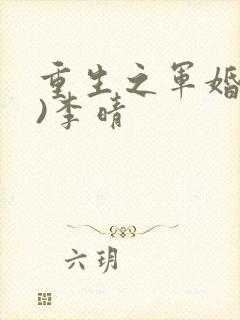 重生之军婚
)李晴
六玥